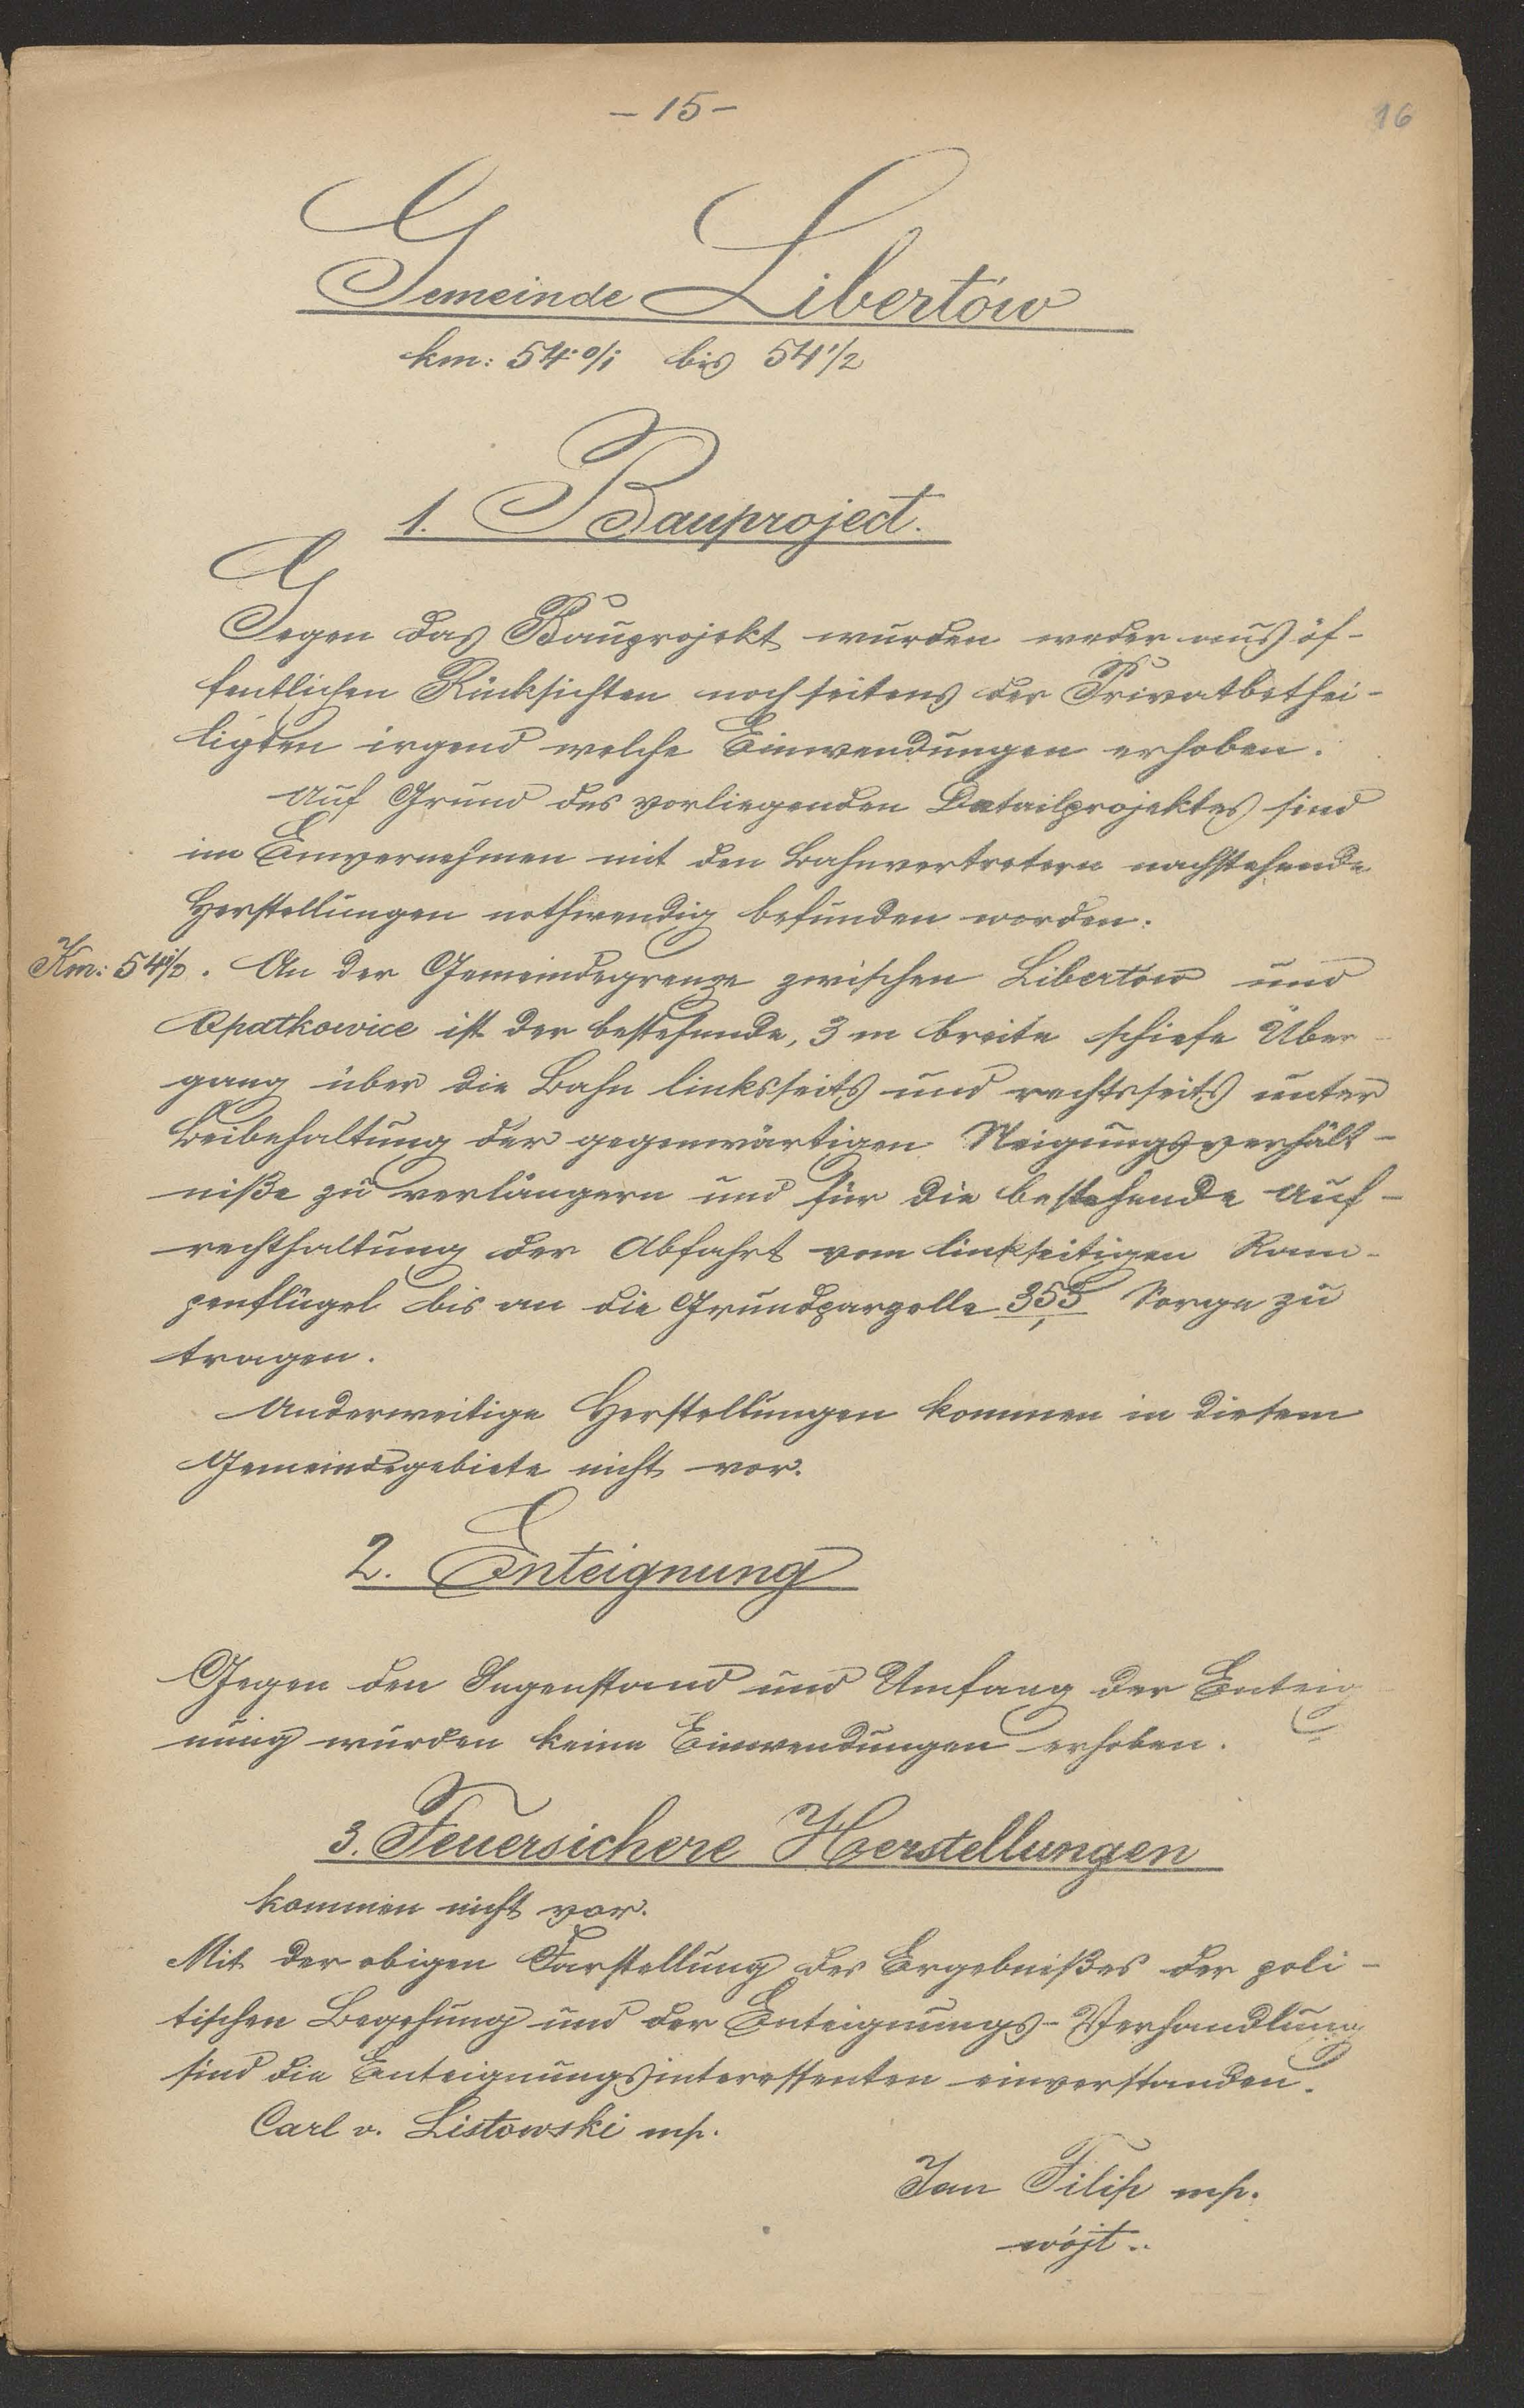 - 15 -
16
Gemeinde Libertów
km: 54·0/1 bis 54 1/2
1. Bauproject.
Gegen das Bauprojekt wurden weder aus öf-
fentlichen Rücksichten noch seitens der Privatbethei-
ligten irgend welche Einwendungen erhoben.
Auf Grund des vorliegenden Detailprojektes sind
im Einvernehmen mit den Bahnvertretern nachstehende
Herstellungen nothwendig befunden worden.
Km: 54 1/2. An der Gemeindegrenze zwischen Libertów und
Opatkowice ist der bestehende, 3 m breite schiefe Über-
gang über die Bahn linksseits und rechtsseits unter
Beibehaltung der gegenwärtigen Neigungsverhält-
niße zu verlängern und für die bestehende Auf-
rechthaltung der Abfahrt vom linkseitigen Ram-
penflügel bis an die Grundparzelle 355/1 Sorge zu
tragen.
Anderweitige Herstellungen kommen in diesem
Gemeindegebiete nicht vor.
2. Enteignung
Gegen den Gegenstand und Umfang der Enteig-
nung wurden keine Einwendungen erhoben.
3. Feuersichere Herstellungen
kommen nicht vor.
Mit der obigen Darstellung des Ergebnißes der poli-
tischen Begehung und der Enteignungs-Verhandlung
sind die Enteignungsinteressenten einverstanden.
Carl v. Listowski mp.
Jan Filip mp.
wójt..